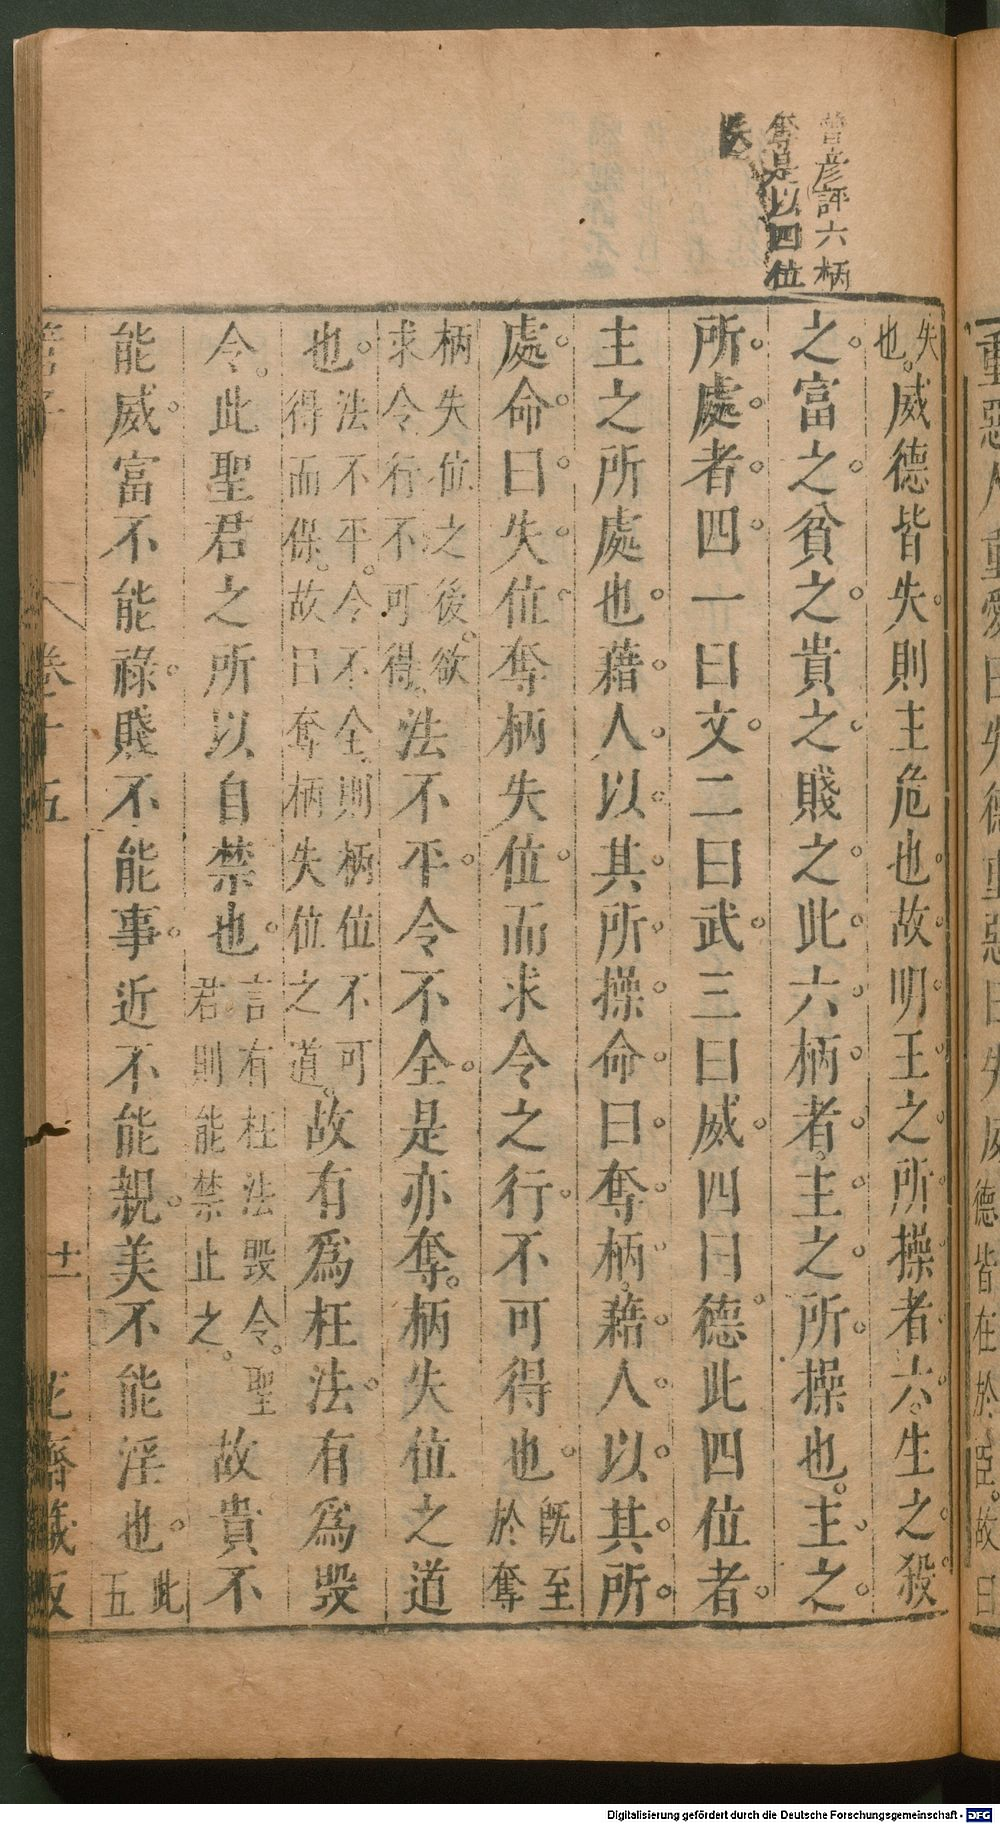 曾彦評六柄
奪是以四位
失
失也威德皆失則主危也故明王之所操者六生之殺
之富之貧之貴之賤之此六柄者主之所操也主之
所處者四一曰文二曰武三曰威四曰德此四位者
主之所處也藉人以其所操命曰奪柄藉人以其所
處命曰失位奪柄失位而求令之行不可得也旣至於奪
柄失位之後欲求令行不可得法不平令不全是亦奪柄失位之道
也法不平令不全則柄位不可得而保故曰奪柄失位之道故有爲枉法有爲毀
令此聖君之所以自禁也言有枉法毀令聖君則能禁止之故貴不
能威富不能祿賤不能事近不能親美不能淫也此五
管子
卷十五
十一
花齋藏板
重惡人重愛曰失德重惡曰失威德皆在於臣故曰
Digitalisierung gefördert durch die Deutsche Forschungsgemeinschaft - DFG